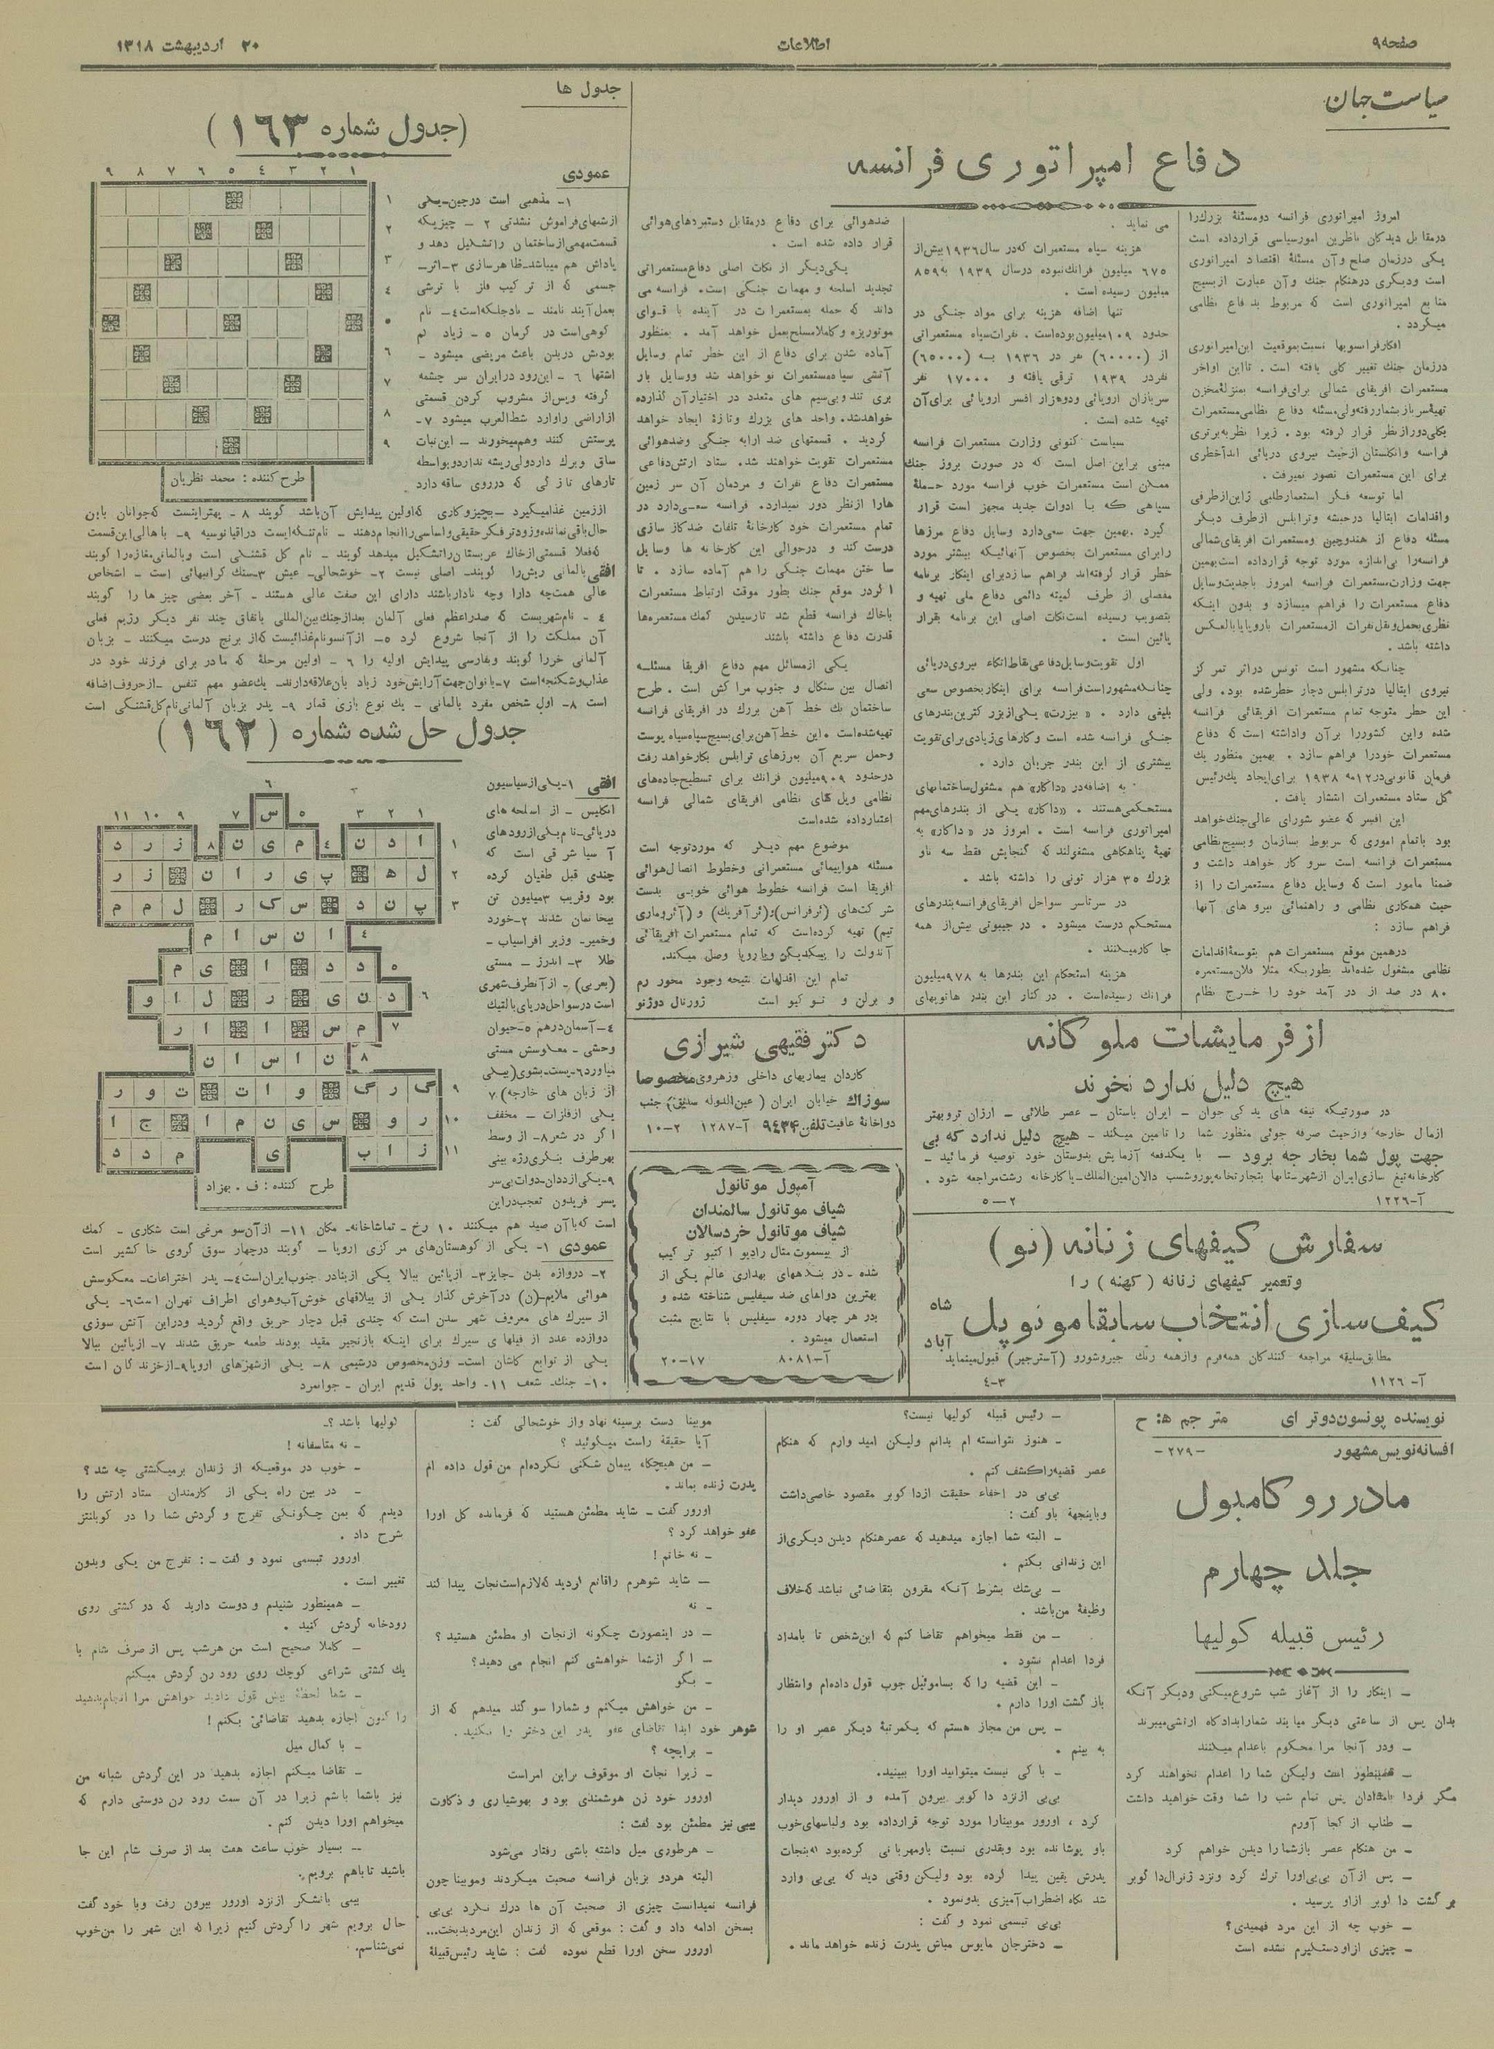 صفحه۹
اطلاعات
۲۰ اردیبهشت ۱۳۱۸
سیاست جهان
دفاع امپراتوری فرانسه
امروز امپراتوری فرانسه دو مسئلهٔ بزرگ را
در مقابل دیدگان ناظرین امور سیاسی قرار داده است
یکی در زمان صلح و آن مسئلهٔ اقتصاد امپراتوری
است و دیگری در هنگام جنگ و آن عبارت از بسیج
منابع امپراتوری است که مربوط بدفاع نظامی
میگردد .
افکار فرانسویها نسبت بموقعیت این امپراتوری
در زمان جنگ تغییر کلی یافته است . تا این اواخر
مستعمرات افریقای شمالی برای فرانسه بمنزلهٔ مخزن
تهیهٔ سرباز بشمار رفته ولی مسئله دفاع نظامی مستعمرات
بکلی دور از نظر قرار گرفته بود . زیرا نظر به برتری
فرانسه و انگلستان از حیث نیروی دریائی ابداً خطری
برای این مستعمرات تصور نمیرفت .
اما توسعه فکر استعمار طلبی ژاپن از طرفی
و اقدامات ایتالیا در حبشه و ترابلس از طرف دیگر
مسئله دفاع از هندوچین و مستعمرات افریقای شمالی
فرانسه را بی اندازه مورد توجه قرار داده است بهمین
جهت وزارت مستعمرات فرانسه امروز با جدیت وسایل
دفاع مستعمرات را فراهم میسازد و بدون اینکه
نظری بحمل و نقل نفرات از مستعمرات باروپا یا بالعکس
داشته باشد .
چنانکه مشهور است تونس در اثر تمرکز
نیروی ایتالیا در ترابلس دچار خطر شده بود . ولی
این خطر متوجه تمام مستعمرات افریقائی فرانسه
شده و این کشور را بر آن واداشته است که دفاع
مستعمرات خود را فراهم سازد . بهمین منظور یک
فرمان قانونی در ۱۲ مه ۱۹۳۸ برای ایجاد یک رئیس
کل ستاد مستعمرات انتشار یافت .
این افسر که عضو شورای عالی جنگ خواهد
بود با تمام اموری که مربوط بسازمان و بسیج نظامی
مستعمرات فرانسه است سر و کار خواهد داشت و
ضمنا مأمور است که وسایل دفاع مستعمرات را از
حیث همکاری نظامی و راهنمائی نیرو های آنها
فراهم سازد :
در همین موقع مستعمرات هم بتوسعهٔ اقدامات
نظامی مشغول شده‌اند بطوریکه مثلا فلان مستعمره
۸۰ در صد از در آمد خود را خرج نظام
می نماید .
هزینه سپاه مستعمرات که در سال ۱۹۳۶ بیش از
۶۷۵ میلیون فرانک نبوده در سال ۱۹۳۹ به ۸۵۹
میلیون رسیده است .
تنها اضافه هزینه برای مواد جنگی در
حدود ۱۰۹ میلیون بوده است . نفرات سپاه مستعمراتی
از (۶۰۰۰۰) نفر در ۱۹۳۶ به (۶۵۰۰۰)
نفر در ۱۹۳۹ ترقی یافته و ۱۷۰۰۰ نفر
سربازان اروپائی و دو هزار افسر اروپائی برای آن
تهیه شده است .
سیاست کنونی وزارت مستعمرات فرانسه
مبنی بر این اصل است که در صورت بروز جنگ
ممکن است مستعمرات خوب فرانسه مورد حملهٔ
سپاهی که با ادوات جدید مجهز است قرار
گیرد . بهمین جهت سعی دارد وسایل دفاع مرزها
را برای مستعمرات بخصوص آنهائیکه بیشتر مورد
خطر قرار گرفته‌اند فراهم سازد برای اینکار برنامه
مفصلی از طرف کمیته دائمی دفاع ملی تهیه و
بتصویب رسیده است نکات اصلی این برنامه بقرار
پائین است .
اول تقویت وسایل دفاعی نقاط اتکاء نیروی دریائی
چنانکه مشهور است فرانسه برای اینکار بخصوص سعی
بلیغی دارد . « بیزرت» یکی از بزرگترین بندرهای
جنگی فرانسه شده است و کارهای زیادی برای تقویت
بیشتری از این بندر جریان دارد .
به اضافه در «داکار» هم مشغول ساختمانهای
مستحکمی هستند . «داکار» یکی از بندرهای مهم
امپراتوری فرانسه است . امروز در «داکار» به
تهیهٔ پناهگاهی مشغولند که گنجایش فقط سه ناو
بزرگ ۳۵ هزار تونی را داشته باشد .
در سرتاسر سواحل افریقای فرانسه بندرهای
مستحکم درست میشود . در جیبوتی بیش از همه
جا کار میکنند .
هزینه استحکام این بندرها به ۹۷۸ میلیون
فرانک رسیده است . در کنار این بندرها توپهای
ضد هوائی برای دفاع در مقابل دستبردهای هوائی
قرار داده شده است .
یکی دیگر از نکات اصلی دفاع مستعمراتی
تجدید اسلحه و مهمات جنگی است . فرانسه می
داند که حمله بمستعمرات در آینده با قوای
موتوریزه و کاملا مسلح بعمل خواهد آمد . بمنظور
آماده شدن برای دفاع از این خطر تمام وسایل
آتشی سپاه مستعمرات نو خواهد شد و وسایل بار
بری تند و بی‌سیم های متعدد در اختیار آن گذارده
خواهد شد . واحد های بزرگ و تازهٔ ایجاد خواهد
گردید . قسمتهای ضد ارابه جنگی و ضد هوائی
مستعمرات تقویت خواهند شد . ستاد ارتش دفاعی
مستعمرات دفاع نفرات و مردمان آن سر زمین
ها را از نظر دور نمیدارد . فرانسه سعی دارد در
تمام مستعمرات خود کارخانهٔ تلفات ضد گاز سازی
درست کند و در حوالی این کارخانه ها وسایل
ساختن مهمات جنگی را هم آماده سازد . تا
اگر در موقع جنگ بطور موقت ارتباط مستعمرات
با خاک فرانسه قطع شد تا رسیدن کمک مستعمره‌ها
قدرت دفاع داشته باشند
یکی از مسائل مهم دفاع افریقا مسئله
اتصال بین سنگال و جنوب مراکش است . طرح
ساختمان یک خط آهن بزرگ در افریقای فرانسه
تهیه شده است . این خط آهن برای بسیج سپاه سیاه پوست
و حمل سریع آن بمرزهای ترابلس بکار خواهد رفت
در حدود ۹۰۹ میلیون فرانک برای تسطیح جاده‌های
نظامی و پل های نظامی افریقای شمالی فرانسه
اعتبار داده شده است
موضوع مهم دیگر که مورد توجه است
مسئله هواپیمائی مستعمراتی و خطوط اتصال هوائی
افریقا است فرانسه خطوط هوائی خوبی بدست
شرکت‌های (ئرفرانس) و (ئرآفریک) و (آئروماری
تیم) تهیه کرده است که تمام مستعمرات افریقائی
آندولت را بیکدیگر و باروپا وصل میکند .
تمام این اقدامات نتیجه وجود محور رم
و برلن و توکیو است ژورنال دوژنو
جدول ها
(جدول شماره ۱۶۳)
۱ ۲ ۳ ٤ ۵ ٦ ۷ ۸ ۹
۱
۲
۳
٤
۵
٦
۷
۸
۹
طرح کننده : محمد نظریان
عمودی
۱- مذهبی است در چین-یکی
از شبهای فراموش نشدنی ۲ - چیزیکه
قسمت مهمی از ساختمان را تشکیل دهد و
پاداش هم میباشد-ظاهر سازی ۳-اثر-
جسمی که از ترکیب فلز با ترشی
بعمل آیند نامند - نام جلگه است ٤- نام
کوهی است در کرمان ۵ - زیاد و کم
بودنش در بدن باعث مریضی میشود -
اشتها ٦ - این رود در ایران سر چشمه
گرفته و پس از مشروب کردن قسمتی
از اراضی را وارد شط العرب میشود ۷-
پرستش کنند و هم میخورند - این نبات
ساق و برگ دارد ولی ریشه ندارد و بواسطه
تارهای نازکی که در روی ساقه دارد
از زمین غذا میگیرد - بچیز و کاری که اولین پیدایش آن باشد گویند ۸ - بهتر اینست که جوانان باین
افقی
جدول حل شده شماره (۱۶۲)
۱ ۲ ۳ ۵ ٦ ۷ ۹ ۱۰ ۱۱
س
ا د ن ٤ م ی ن ۸ ز ر د
ل ه پ ی ر ا ن ز ر
پ ن د س ک ر ل م م
ا ن س ا م
د د ا ی م
د ن ی ر ل ا و
م س ا ا ر
ن ا س ا ن
گ ر گ و ا ت ت و ر
ر و س ی ن م ا ج ا
ز ا ب ی م د د
طرح کننده : ف . بهزاد
افقی ۱-یکی از سیاسیون
انگلیس - از اسلحه های
دریائی-نام یکی از رودهای
آسیا شرقی است که
چندی قبل طغیان کرده
بود و قریب ۳ میلیون تن
بیخانمان شدند ۲-خورد
و خمیر- وزیر افراسیاب -
طلا ۳- اندرز - مستی
(بعربی) - از آنطرف شهری
است در سواحل دریای بالتیک
٤-آسمان درهم ۵-حیوان
وحشی - معکوسش مستی
میاورد ٦-پست-بشوی (بیکی
از زبان های خارجه) ۷
یکی از فلزات - مخفف
اگر در شعر ۸- از وسط
بهر طرف بنگری رژه بینی
۹-یکی از ددان-دوات بی سر
پسر فریدون تعجب در این
است که با آن صید هم میکنند ۱۰ رخ - تماشاخانه- مکان ۱۱- از آن سو مرغی است شکاری - کمک
عمودی ۱- یکی از کوهستان‌های مرکزی اروپا - گویند در چهار سوق گروی خاکشیر است
۲- دروازه بدن - جایز ۳- از پائین ببالا یکی از بنادر جنوب ایران است ٤- پدر اختراعات- معکوسش
هوائی ملایم-(ن) در آخرش گذار یکی از ییلاقهای خوش آب و هوای اطراف تهران است ٦- یکی
از سیرک های معروف شهر سدن است که چندی قبل دچار حریق واقع گردید و در این آتش سوزی
دوازده عدد از فیلهای سیرک برای اینکه با زنجیر مقید بودند طعمه حریق شدند ۷- از پائین ببالا
یکی از توابع کاشان است- وزن مخصوص در شیمی ۸- یکی از شهرهای اروپا ۹-از خزندگان است
۱۰- جنگ- شعف ۱۱- واحد پول قدیم ایران - جوانمرد
دکتر فقیهی شیرازی
کاردان بیماریهای داخلی و زهروی مخصوصا
سوزاک خیابان ایران (عین الدوله سابق) جنب
دواخانهٔ عافیت تلفن ۹٤۳۴ آ-۱۲۸۷ ۲-۱۰
آمپول موتانول
شیاف موتانول سالمندان
شیاف موتانول خردسالان
از بیسموت مثال رادیو اکتیو ترکیب
شده - در بنگاههای بهداری عالم یکی از
بهترین دواهای ضد سیفلیس شناخته شده و
بدر هر چهار دوره سیفلیس با نتایج مثبت
استعمال میشود .
آ-۸۰۸۱ ۱۷-۲۰
از فرمایشات ملوکانه
هیچ دلیل ندارد نخرند
در صورتیکه تیغه های یدکی جوان - ایران باستان - عصر طلائی - ارزان تر و بهتر
از مال خارجه و از حیث صرفه جوئی منظور شما را تأمین میکند - هیچ دلیل ندارد که بی
جهت پول شما بخارجه برود - با یکدفعه آزمایش بدوستان خود توصیه فرمائید -
کارخانه تیغ سازی ایران از شهرستانها بتجارتخانه یوروشسب دالان امین الملک-یا کارخانه رشت مراجعه شود .
آ-۱۲۲٦ ۲-۵
سفارش کیفهای زنانه (نو)
و تعمیر کیفهای زنانه (کهنه) را
کیف سازی انتخاب سابقا مونوپل شاه آباد
مطابق سلیقه مراجعه کنندگان همه فرم و از همه رنگ جیر و شورو (آسترجیر) قبول مینماید
آ- ۱۱۲٦ ۳-٤
نویسنده پونسون دوترای مترجم ه: ح
افسانه نویس مشهور -۲۷۹-
مادر رو کامبول
جلد چهارم
رئیس قبیله کولیها
- اینکار را از آغاز شب شروع میکنی و دیگر آنکه
بدان پس از ساعتی دیگر میایند شما را بدادگاه ارتشی میبرند
- و در آنجا مرا محکوم باعدام میکنند
- همینطور است ولیکن شما را اعدام نخواهند کرد
مگر فردا بامدادان پس تمام شب را شما وقت خواهید داشت
- طناب از کجا آورم
- من هنگام عصر باز شما را دیدن خواهم کرد
- پس از آن بی بی او را ترک کرد و نزد ژنرال دا کوبر
بر گشت دا کوبر از او پرسید .
- خوب چه از این مرد فهمیدی؟
- چیزی از او دستگیرم نشده است
- رئیس قبیله کولیها نیست؟
- هنوز نتوانسته ام بدانم ولیکن امید وارم که هنگام
عصر قضیه را کشف کنم .
بی بی در اخفاء حقیقت از دا کوبر مقصود خاصی داشت
و باینجهة باو گفت :
- البته شما اجازه میدهید که عصر هنگام دیدن دیگری از
این زندانی بکنم .
- بی شک بشرط آنکه مقرون بتقاضائی نباشد که خلاف
وظیفهٔ من باشد .
- من فقط میخواهم تقاضا کنم که این شخص تا بامداد
فردا اعدام نشود .
- این قضیه را که بساموئیل جوب قول داده‌ام و انتظار
باز گشت او را دارم .
- پس من مجاز هستم که یکمرتبهٔ دیگر عصر او را
به بینم .
- با کی نیست میتوانید او را ببینید .
بی بی از نزد دا کوبر بیرون آمده و از اورور دیدار
کرد ، اورور موبینا را مورد توجه قرار داده بود و لباسهای خوب
باو پوشانده بود و بقدری نسبت باو مهربانی کرده بود که بنجات
پدرش یقین پیدا کرده بود ولیکن وقتی دید که بی بی وارد
شد نگاه اضطراب آمیزی بدو نمود .
بی بی تبسمی نمود و گفت :
- دختر جان مایوس مباش پدرت زنده خواهد ماند .
موبینا دست برسینه نهاد و از خوشحالی گفت :
آیا حقیقة راست میگوئید ؟
- من هیچگاه پیمان شکنی نکرده‌ام من قول داده ام
پدرت زنده بماند .
اورور گفت - شاید مطمئن هستید که فرمانده کل او را
عفو خواهد کرد ؟
- نه خانم !
- شاید شوهرم را قانع کردید که لازم است نجات پیدا کند
- نه
- در اینصورت چگونه از نجات او مطمئن هستید ؟
- اگر از شما خواهشی کنم انجام می دهید؟
- بگو
- من خواهش میکنم و شما را سوگند میدهم که از
شوهر خود ابدا تقاضای عفو پدر این دختر را نکنید .
- برایچه ؟
- زیرا نجات او موقوف براین امر است
اورور خود زن هوشمندی بود و بهوشیاری و ذکاوت
بیبی نیز مطمئن بود گفت :
- هر طوری میل داشته باشی رفتار می شود
البته هر دو بزبان فرانسه صحبت میکردند و موبینا چون
فرانسه نمیدانست چیزی از صحبت آن ها درک نکرد بی بی
بسخن ادامه داد و گفت : موقعی که از زندان این مرد بدبخت...
اورور سخن او را قطع نموده گفت : شاید رئیس قبیلهٔ
کولیها باشد ؟-
- نه متاسفانه !
- خوب در موقعیکه از زندان برمیگشتی چه شد ؟
- در بین راه یکی از کارمندان ستاد ارتش را
دیدم که بمن چگونگی تفرج و گردش شما را در کوبلنتز
شرح داد .
اورور تبسمی نمود و گفت -: تفرج من یکی و بدون
تغییر است .
- همینطور شنیدم و دوست دارید که در کشتی روی
رودخانه گردش کنید .
- کاملا صحیح است من هر شب پس از صرف شام با
یک کشتی شراعی کوچک روی رود رن گردش میکنم
- شما لحظهٔ پیش قول دادید خواهش مرا انجام بدهید
را کنون اجازه بدهید تقاضائی بکنم !
- با کمال میل
- تقاضا میکنم اجازه بدهید در این گردش شبانه من
نیز با شما باشم زیرا در آن سمت رود رن دوستی دارم که
میخواهم او را دیدن کنم .
- بسیار خوب ساعت هفت بعد از صرف شام این جا
باشید تا باهم برویم .
بیبی با تشکر از نزد اورور بیرون رفت و با خود گفت
حال برویم شهر را گردش کنیم زیرا که این شهر را من خوب
نمی شناسم .